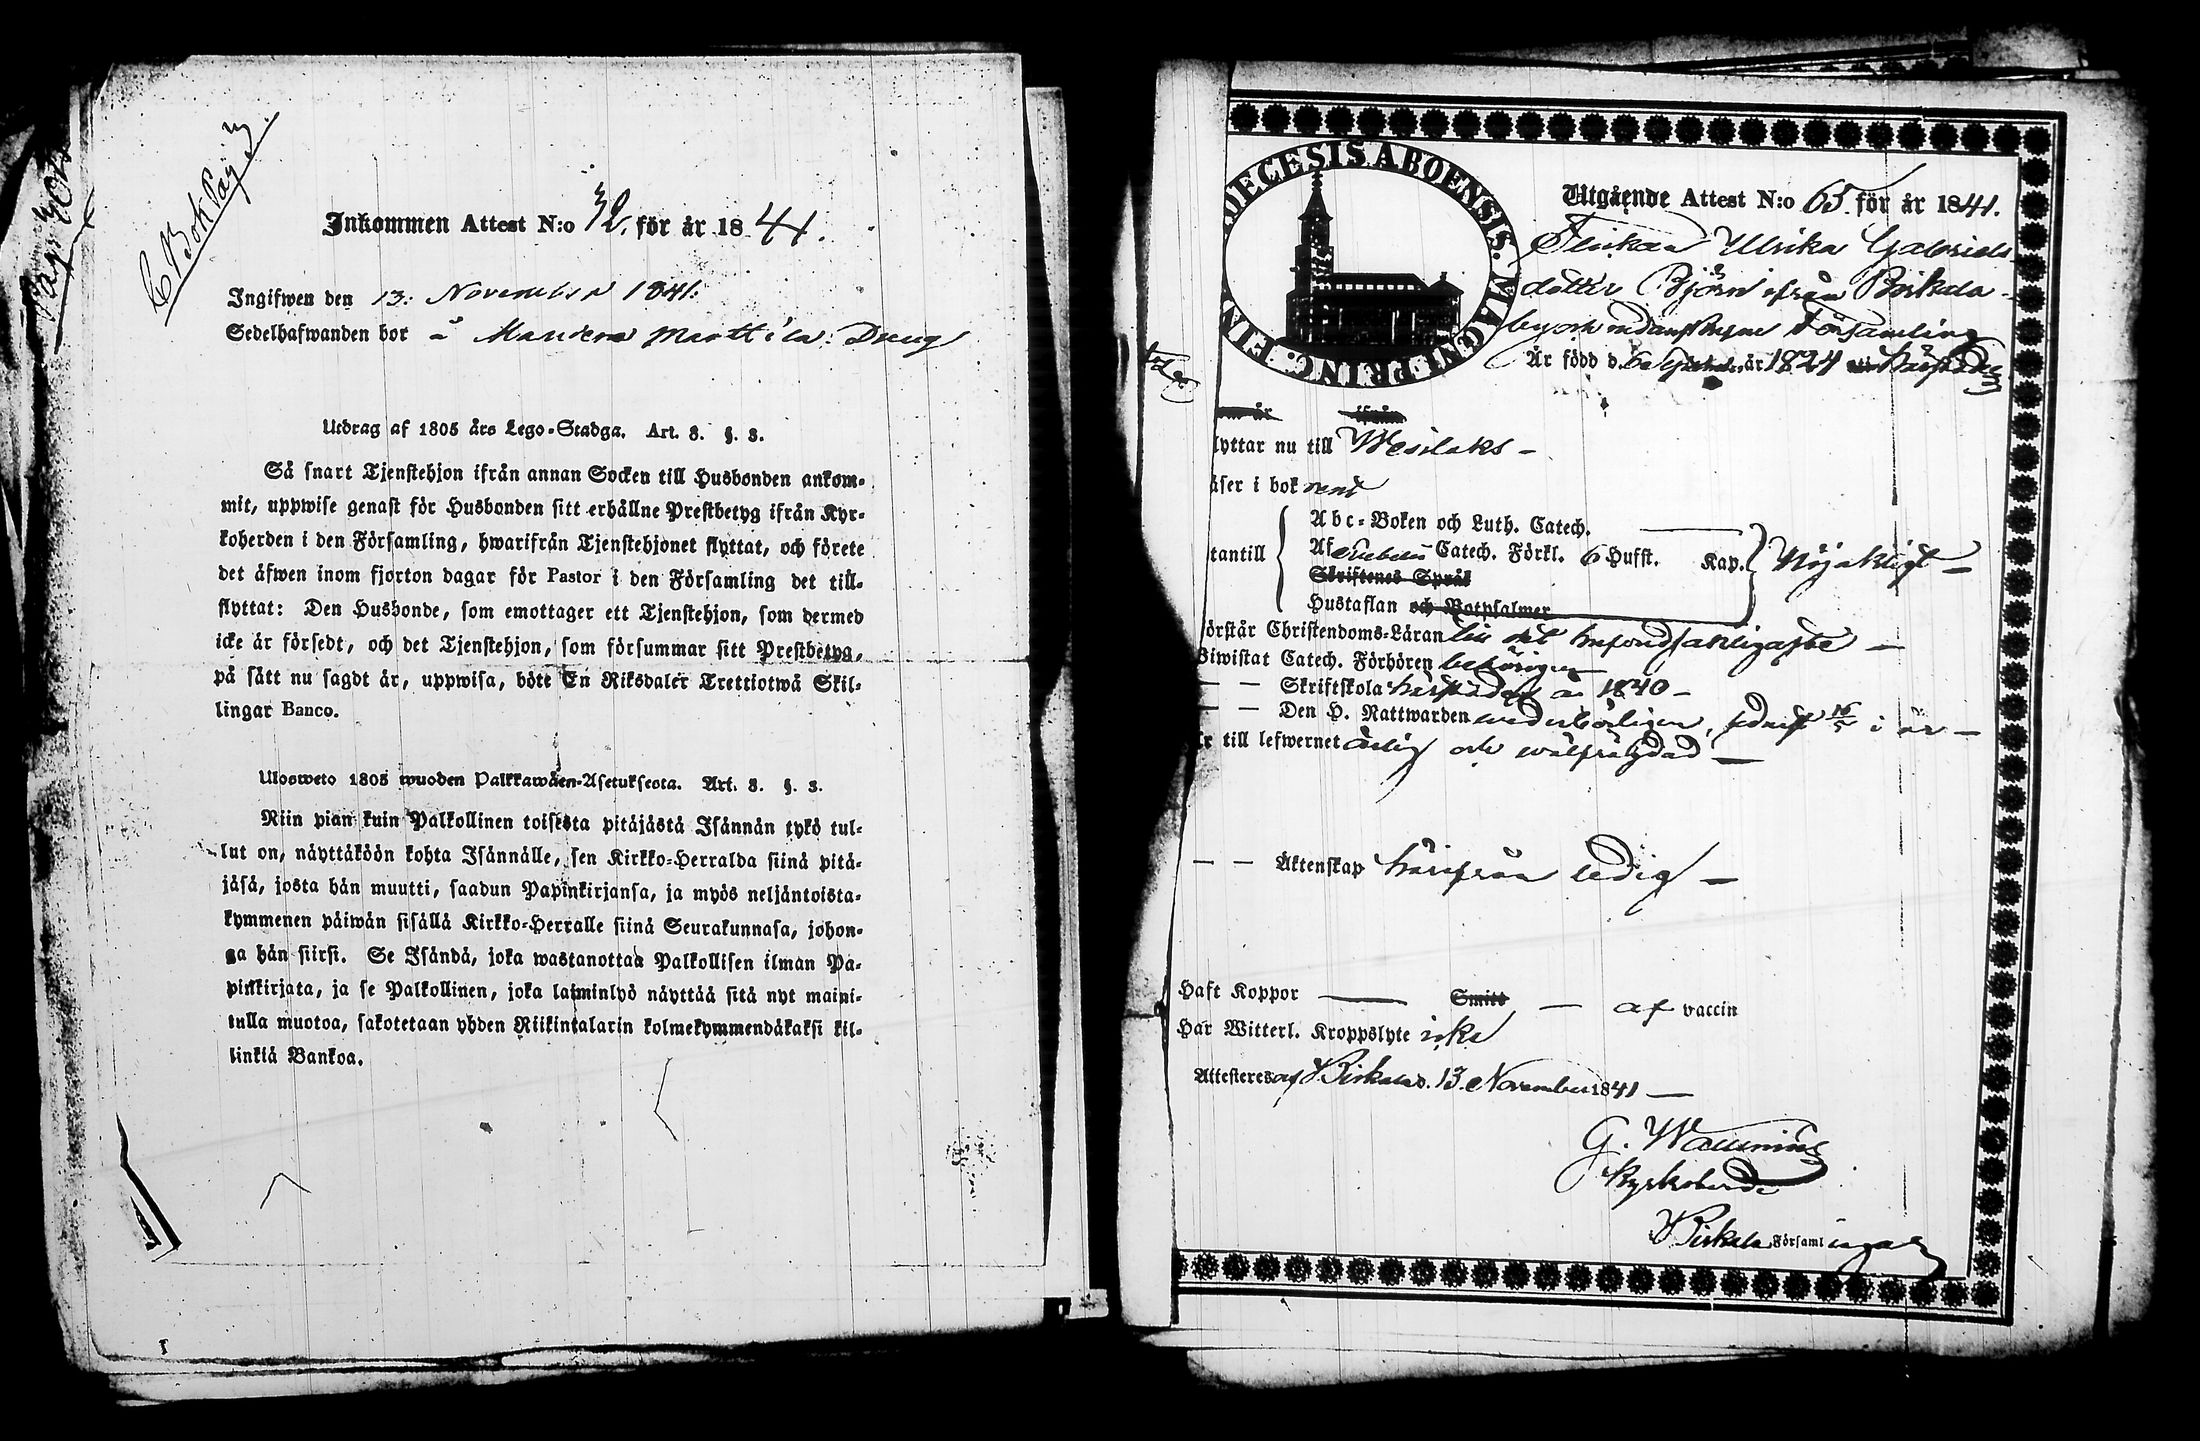 C Bok Pag
Inkommen Attest N:o 72. för år 1841.
Ingifwen den 13: November 1841:
Sedelhafwanden bor å Marttila: Dreng
Utdrag af 1805 års Lego-Stadga. Art. 8. §. 3.
Så snart Tjenstehjon ifrån annan Socken till Husbonden ankom-
mit, uppwise genast för Husbonden sitt erhållne Prestbetyg ifrån Kyr-
koherden i den Församling, hwarifrån Tjenstehjonet flyttat, och förete
det äfwen inom fjorton dagar för Pastor i den Församling det till-
flyttat: Den Husbonde, som emottager ett Tjenstehjon, som dermed
icke är försedt, och det Tjenstehjon, som försummar sitt Prestbetyg,
på sätt nu sagdt är, uppwisa, böte En Riksdaler Trettiotwå Skil-
lingar Banco.
Ulosweto 1805 wuoden Palkkawäen-Asetuksesta. Art. 8. §. 3.
Niin pian kuin Palkollinen toisesta pitäjästä Isännän tykö tul-
lut on, näyttäköön kohta Isännälle, sen Kirkko-Herralda siinä pitä-
jäsä, josta hän muutti, saadun Papinkirjansa, ja myös neljäntoista-
kymmenen päiwän sisällä Kirkko-Herralle siinä Seurakunnasa, johon-
ga hän siirsi. Se Isändä, joka wastanottaa Palkollisen ilman Pa-
pinkirjata, ja se Palkollinen, joka laiminlyö näyttää sitä nyt maini-
tulla muotoa, sakotetaan yhden Riikintalarin kolmekymmendäkaksi kil-
linkiä Bankoa.
DIOECESIS ABOENSIS. MAGNI PRINC. FIN
Utgående Attest N:o 65. för år 1841.
Flickan Ulrika Gabriels
dotter Björn ifrån Birkala
by och Församling
Är född d. 6 September år 1824 härstädes
om år ifrån
lyttar nu till Wesilaks –
äser i bok rent
tantill
Abc-Boken och Luth. Catech.
Af Svebelii Catech. Förkl. 6 Hufst. Kap. Nöjaktigt –
Skriftenes Språk
Hustaflan och Botpsalmer
örstår Christendoms-Läran till det hufvudsakligaste –
Biwistat Catech. Förhören behörigen
– – Skriftskola härstädes år 1840 –
– – Den H. Nattwarden wederbörligen, sednast 16/5 i år –
r till lefwernet ärlig och wälfrägdad –
– – Äktenskap härifrån ledig –
Haft Koppor — Smitt – af vaccin
Har Witterl. Kroppslyte icke
Attesteres af Birkala d. 13. November 1841 –
G. Wallenius
Kyrkoherde
Birkala Församlingar